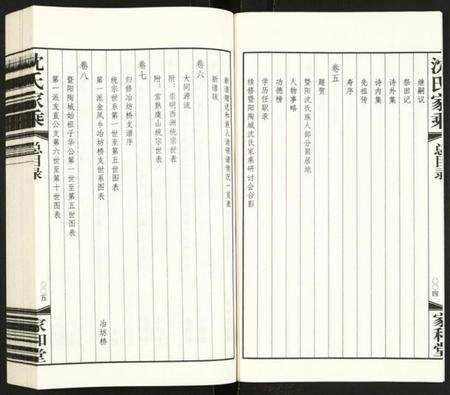 沈氏家乘
总目录
〇〇四
家和堂
继嗣议
祭田记
诗外集
诗内集
先祖传
寿序
卷五
题赞
暨阳沈氏族人部分聚居地
人物事略
功德榜
学历任职录
续修暨阳陶城沈氏家乘研讨会合影
新谱跋
新谱赠送和族人请领谱情况一览表
卷六
大同源流
附：崇明西洲统宗世表
附：常熟虞山统宗世表
卷七
归修冶坊桥支谱序
统宗世系第一世至第五世图表
第一派金凤乡冶坊桥支世系图表
冶坊桥
卷八
暨阳陶城始祖子华公第一世至第五世图表
第一派发直公支第六世至第十世图表
沈氏家乘
总目录
〇〇五
家和堂